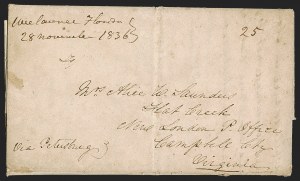 Florida
28 November 1836
25
Mrs Alice W. Saunders
Flat Creek
New London P. Office
Campbell Cty
Virginia
via Petersburg